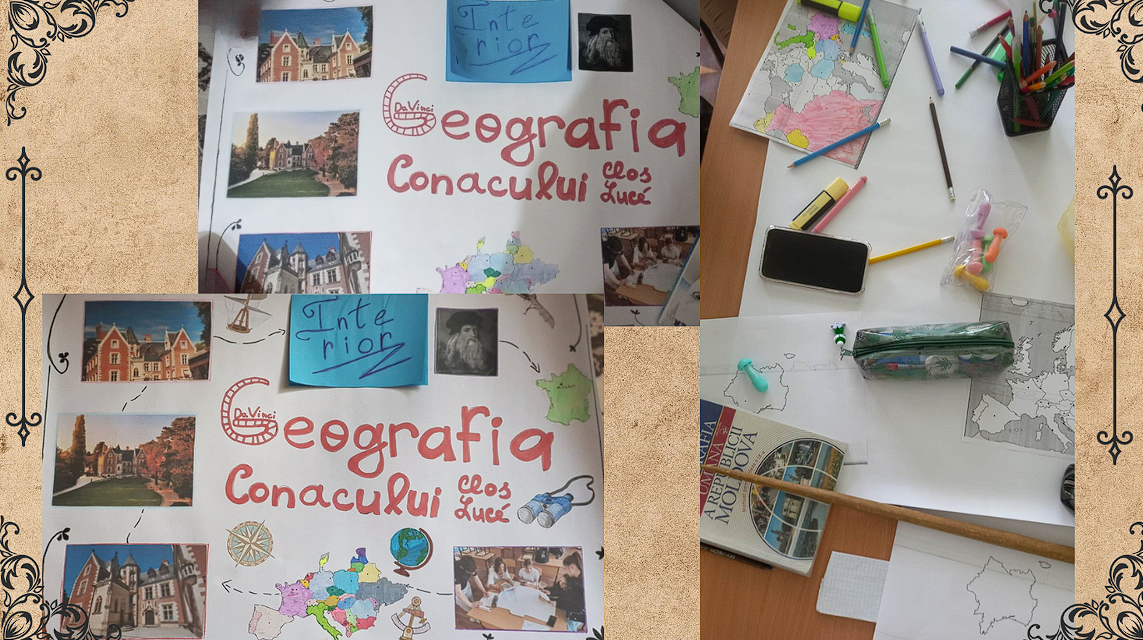 Inte
rior
Da Vinci
Geografia
Conacului Clos
Lucé
Inte
rior
Da Vinci
Geografia
Conacului Clos
Lucé
A REPUBLICII
MOLDOVA